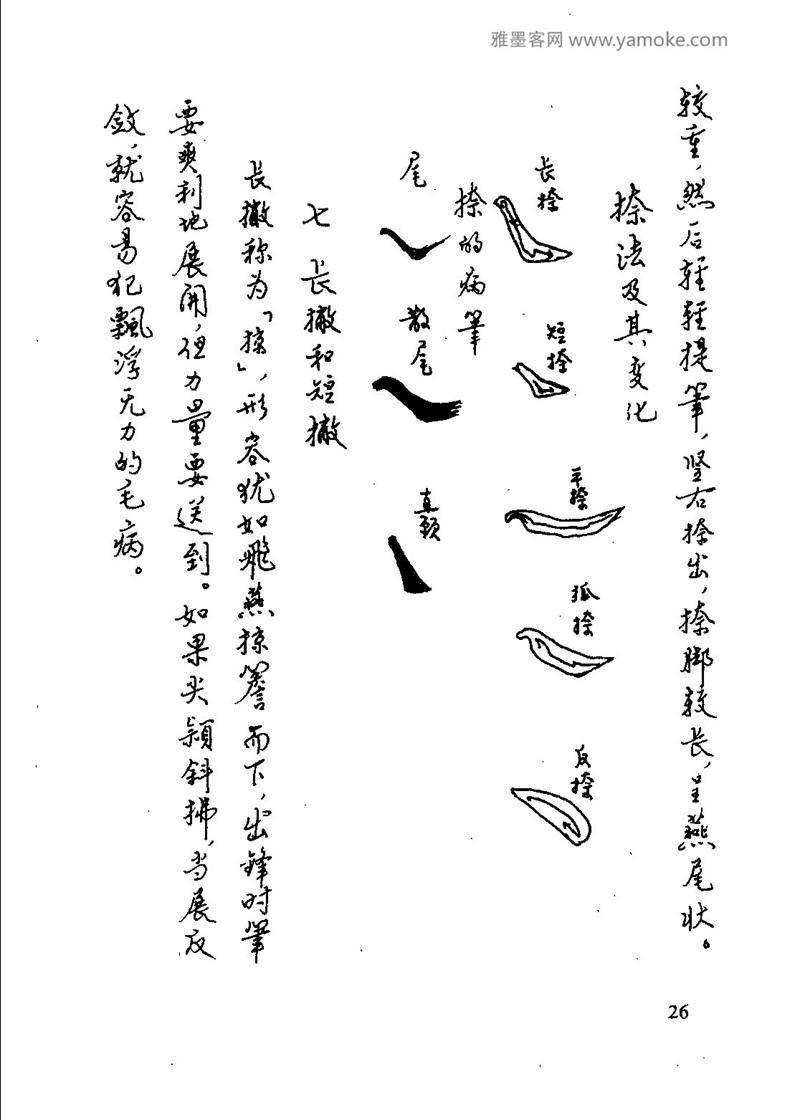 雅墨客网 www.yamoke.com
较重，然后轻轻提笔，竖右捺出，捺脚较长，呈燕尾状。
捺法及其变化
长捺
短捺
平捺
孤捺
反捺
捺的病笔
尾
散尾
直颈
七 长撇和短撇
长撇称为「掠」，形容犹如飞燕掠簷而下，出锋时笔
要爽利地展开，但力量要送到。如果尖颖斜拂，当展反
敛，就容易犯飘浮无力的毛病。
26